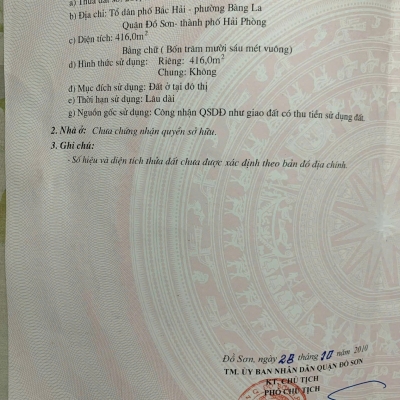 a) Thửa đất số:
b) Địa chỉ: Tổ dân phố Bác Hải - phường Bàng La
Quận Đồ Sơn- thành phố Hải Phòng
c) Diện tích: 416,0m²
Bằng chữ ( Bốn trăm mười sáu mét vuông)
d) Hình thức sử dụng: Riêng: 416,0m²
Chung: Không
đ) Mục đích sử dụng: Đất ở tại đô thị
e) Thời hạn sử dụng: Lâu dài
g) Nguồn gốc sử dụng: Công nhận QSDĐ như giao đất có thu tiền sử dụng đất.
2. Nhà ở: Chưa chứng nhận quyền sở hữu.
3. Ghi chú:
- Số hiệu và diện tích thửa đất chưa được xác định theo bản đồ địa chính.
Đồ Sơn, ngày 28 tháng 10 năm 2010
TM. ỦY BAN NHÂN DÂN QUẬN ĐỒ SƠN
KT. CHỦ TỊCH
PHÓ CHỦ TỊCH